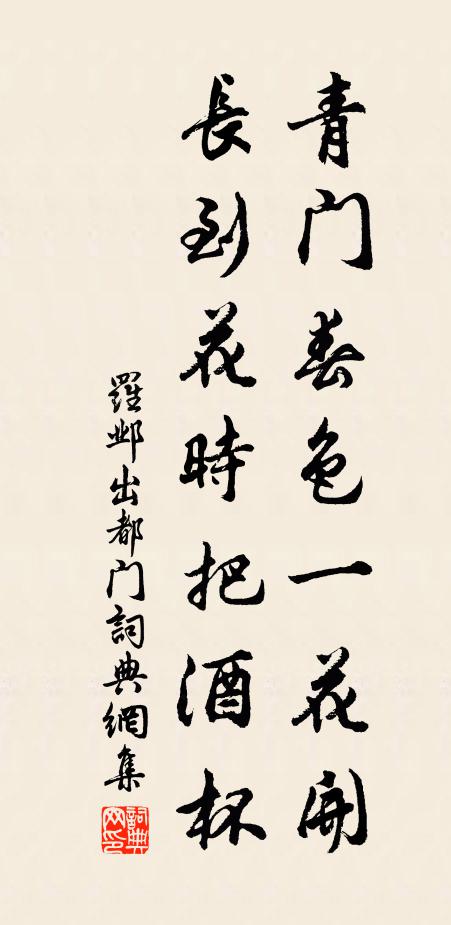 青门春色一花開
長到花時把酒杯
羅邺出都门詞典網集
詞典
网印